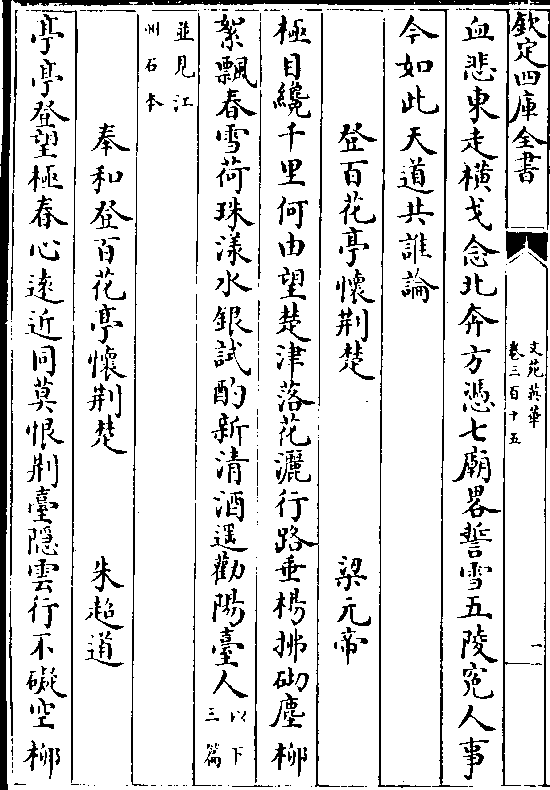 欽定四庫全書
文苑英華
卷三百十五
一
血悲東走橫戈念北奔方憑七廟畧誓雪五陵寃人事
今如此天道共誰論
登百花亭懷荆楚 梁元帝
極目纔千里何由望楚津落花灑行路垂楊拂砌塵柳
絮飄春雪荷珠漾水銀試酌新清酒遥勸陽臺人以下
三篇
並見江
州石本
奉和登百花亭懷荆楚 朱超道
亭亭登望極春心遠近同莫恨荆臺隠雲行不礙空柳